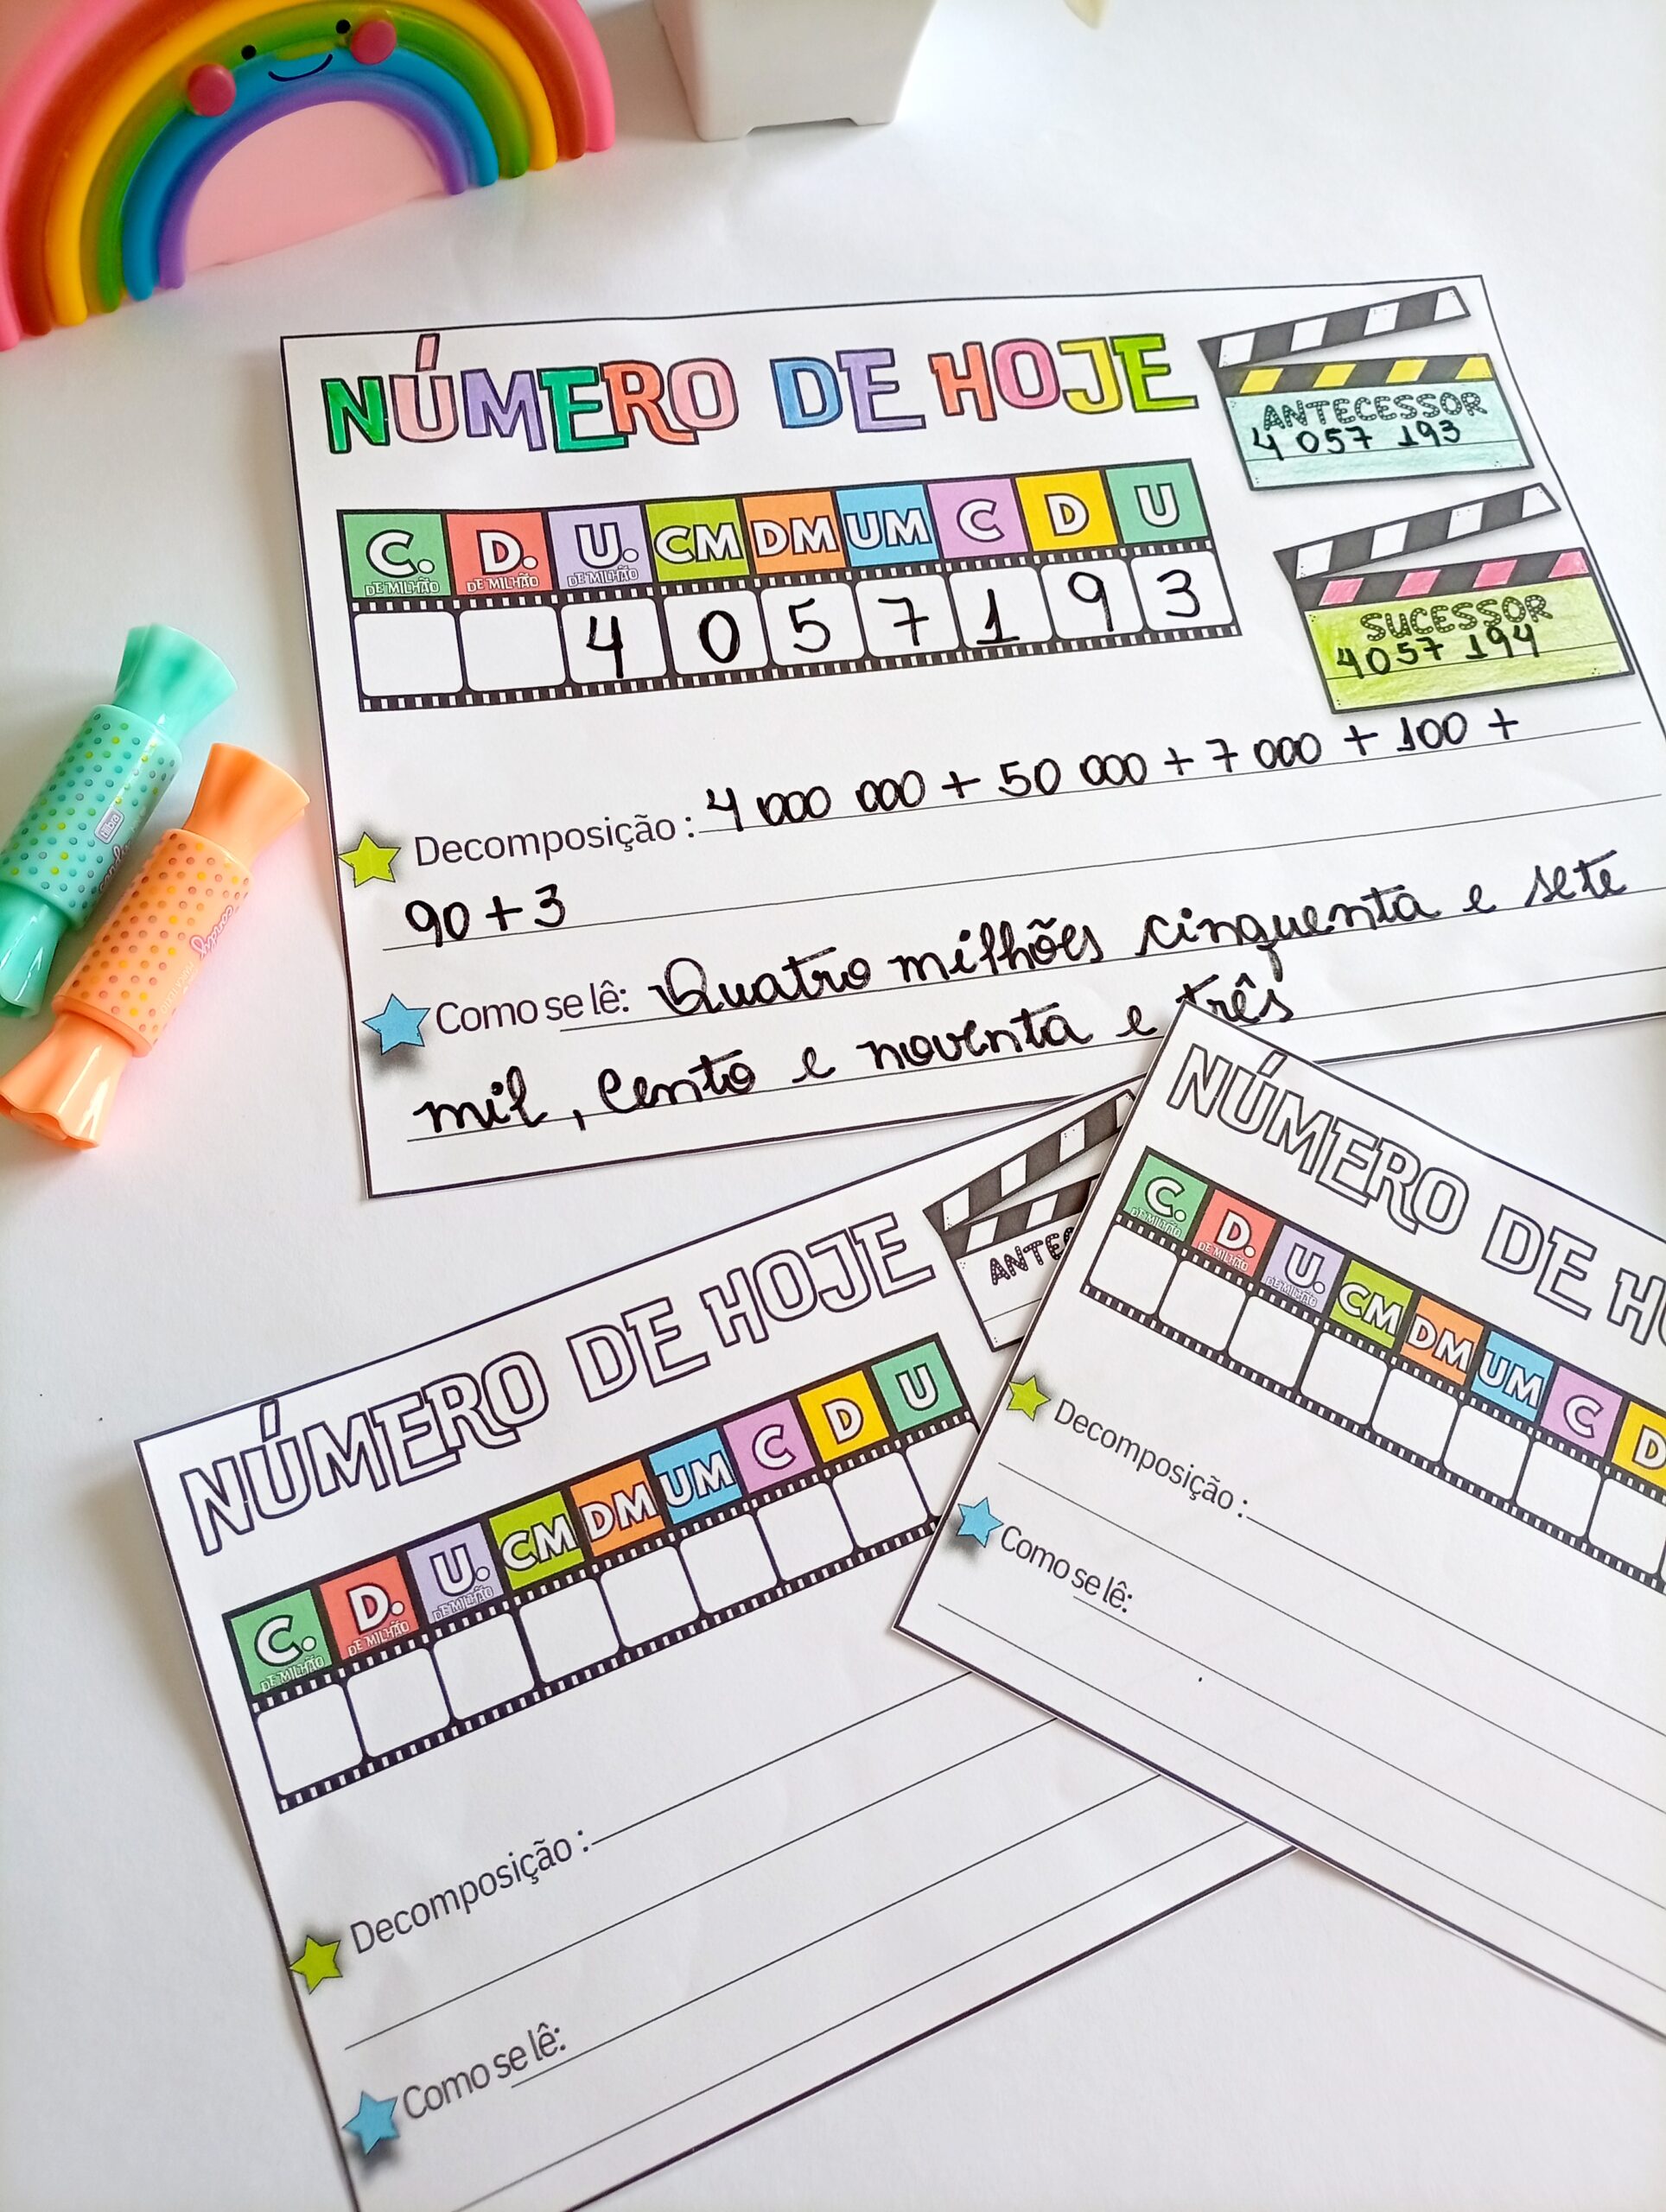 NÚMERO DE HOJE
ANTECESSOR
4 057 193
C. D. U. CM DM UM C D U
DE MILHÃO DE MILHÃO DE MILHÃO
4 0 5 7 1 9 3
SUCESSOR
4057 194
Decomposição : 4 000 000 + 50 000 + 7 000 + 100 +
90 + 3
Como se lê: Quatro milhões cinquenta e sete
mil, cento e noventa e três
tilibra
NÚMERO DE HOJE
C. D. U. CM DM UM C D U
DE MILHÃO DE MILHÃO DE MILHÃO
Decomposição :
Como se lê:
NÚMERO DE
C. D. U. CM DM UM C D
DE MILHÃO DE MILHÃO DE MILHÃO
Decomposição :
Como se lê: